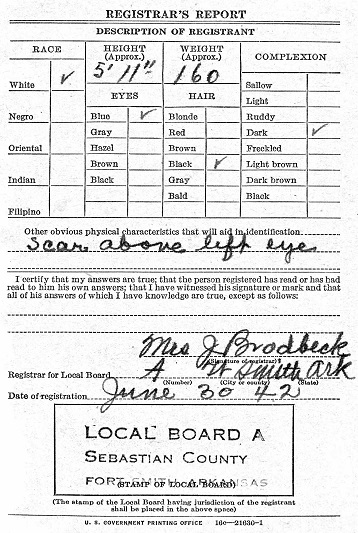 REGISTRAR'S REPORT
DESCRIPTION OF REGISTRANT
RACE
HEIGHT
(Approx.)
WEIGHT
(Approx.)
COMPLEXION
5' 11"
160
White ✓
Sallow
EYES
HAIR
Light
Negro
Blue ✓
Blonde
Ruddy
Gray
Red
Dark ✓
Oriental
Hazel
Brown
Freckled
Brown
Black ✓
Light brown
Indian
Black
Gray
Dark brown
Bald
Black
Filipino
Other obvious physical characteristics that will aid in identification
Scar above left eye
I certify that my answers are true; that the person registered has read or has had
read to him his own answers; that I have witnessed his signature or mark and that
all of his answers of which I have knowledge are true, except as follows:
Mrs J. Brodbeck
(Signature of registrar)
Registrar for Local Board A Ft Smith Ark
(Number) (City or county) (State)
Date of registration June 30 42
LOCAL BOARD A
SEBASTIAN COUNTY
FORT SMITH ARKANSAS
(STAMP OF LOCAL BOARD)
(The stamp of the Local Board having jurisdiction of the registrant
shall be placed in the above space)
U. S. GOVERNMENT PRINTING OFFICE 16—21630-1